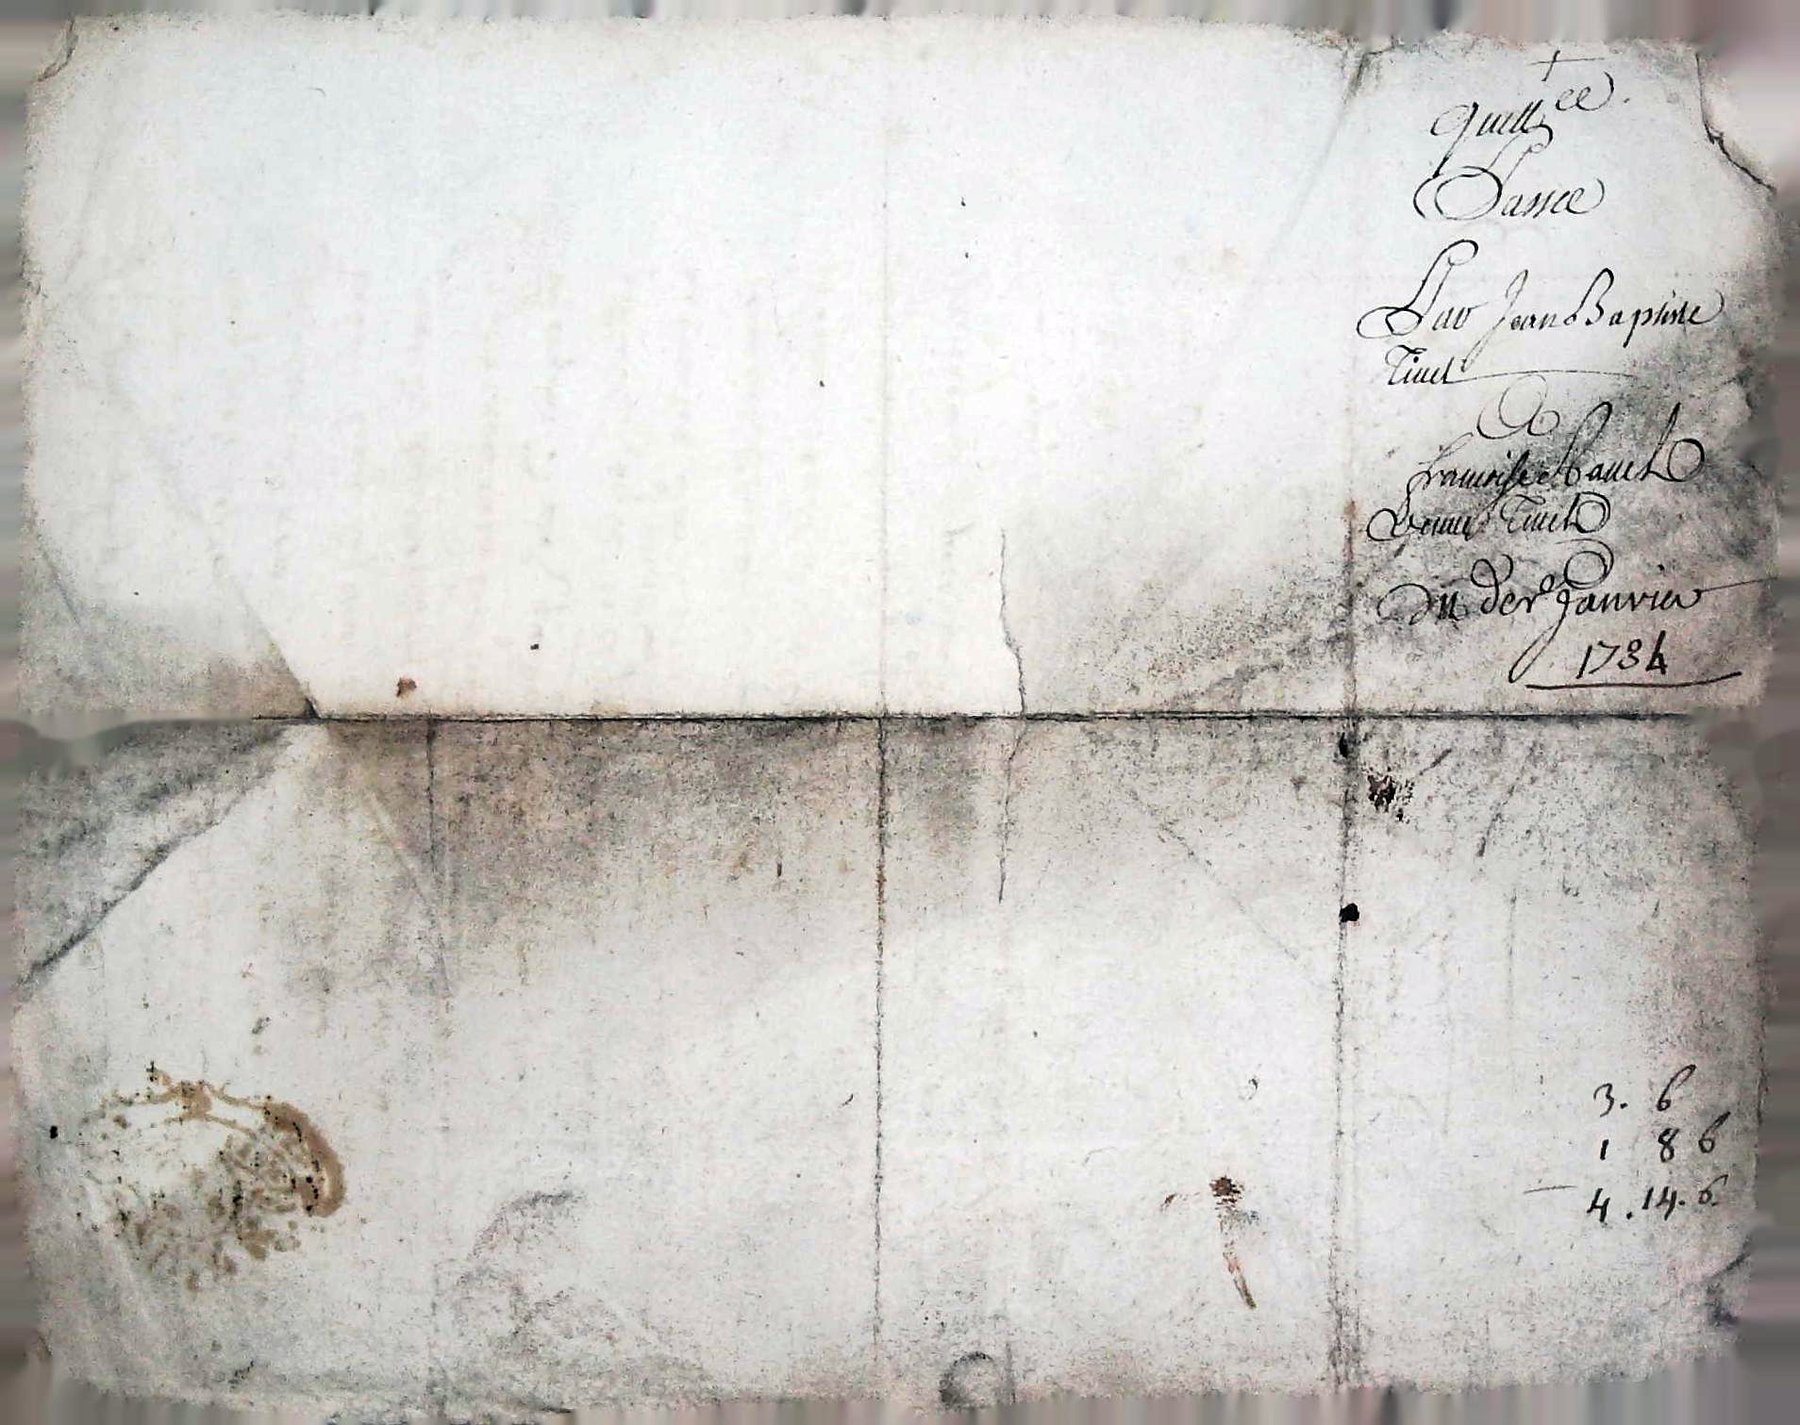 +
quitt ce.
Passée
Par Jean Baptiste
Tinet
A
francoise
Veuve Tinet
Du der.º Janvier
1734
3. 6
1 8 6
4. 14. 6.